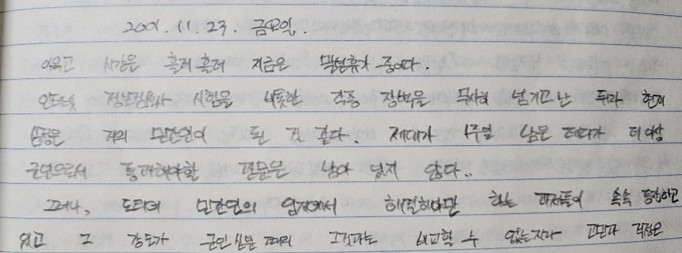 2001. 11. 23. 금요일.
시간은 흘러 흘러 지금은 말년휴가 중이다.
인터넷 정보검색사 시험을 비롯한 각종 장벽을 무사히 넘기고 난 뒤라 현재
심정은 거의 민간인이 된 것 같다. 제대가 4주일 남은 데다가 더이상
군인으로서 통과해야할 관문은 남아 있지 않다..
그러나, 도리어 민간인의 입장에서 해결해야만 하는 과제들이 속속 등장하고
있고 그 강도가 군인신분 때의 그것과는 비교할 수 없는지라 고민과 걱정은